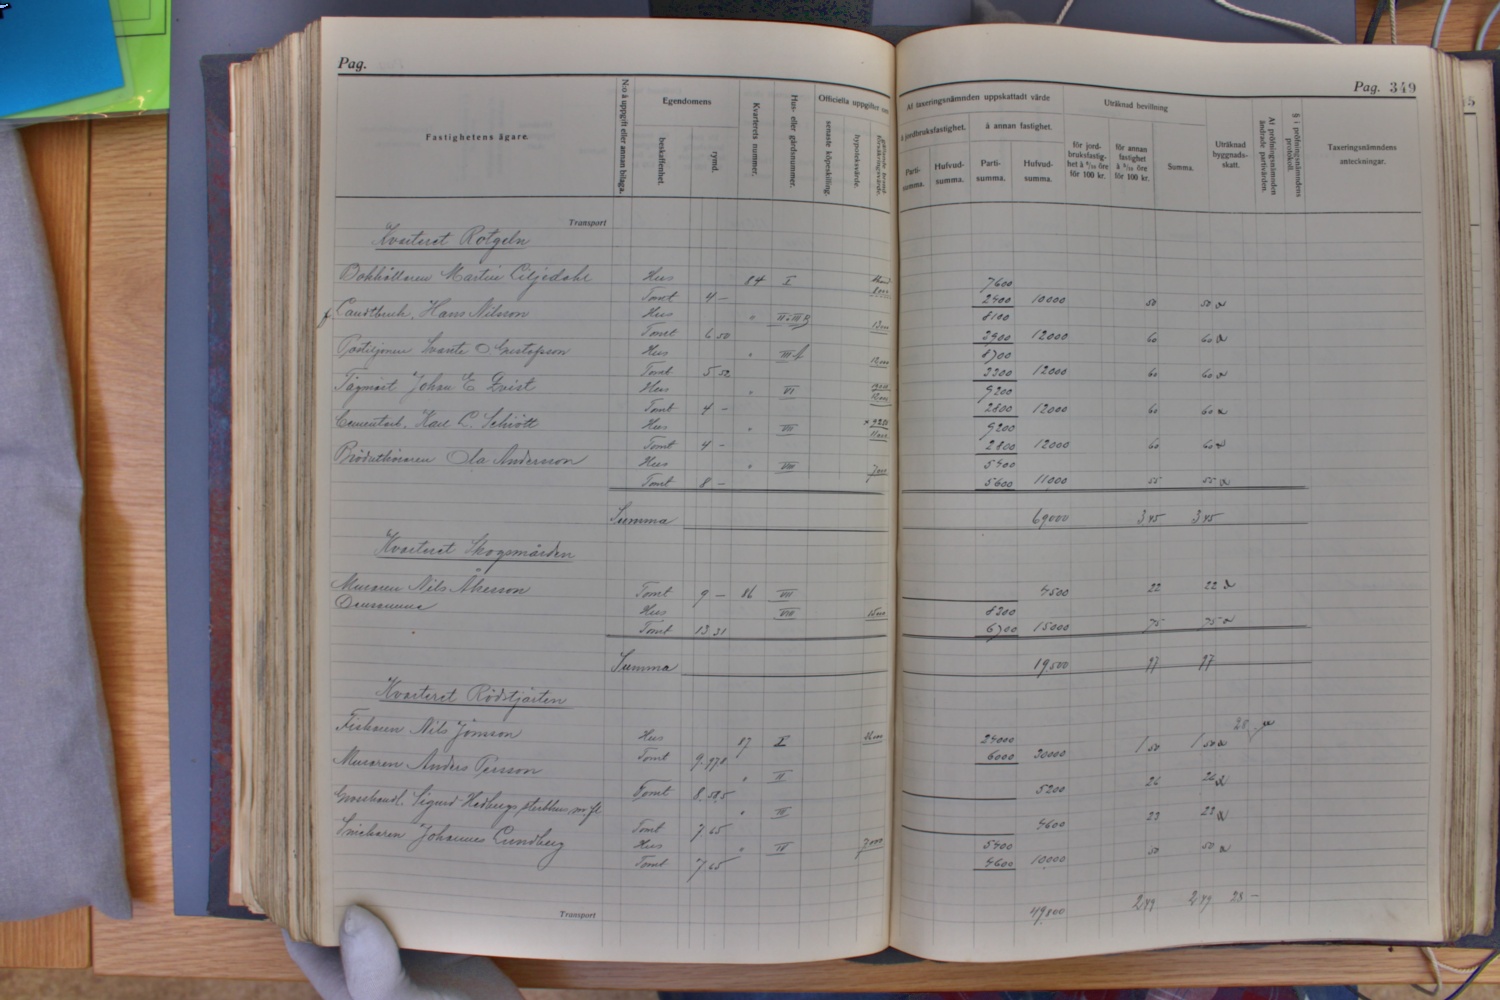 Pag.
Pag. 349
Fastighetens ägare.
N:o å uppgift eller annan bilaga.
Egendomens
beskaffenhet.
rymd.
Kvarterets nummer.
Hus- eller gårdsnummer.
Officiella uppgifter om
senaste köpeskilling.
hypoteksvärde.
Af taxeringsnämnden uppskattadt värde
å jordbruksfastighet.
å annan fastighet.
Parti-summa.
Hufvud-summa.
Parti-summa.
Hufvud-summa.
Uträknad bevillning
för jord-bruksfastig-het à 6/10 öre för 100 kr.
för annan fastighet à 5/10 öre för 100 kr.
Summa.
Uträknad byggnads-skatt.
Af pröfningsnämnden ändrade partivärden.
§ i pröfningsnämndens protokoll.
Taxeringsnämndens anteckningar.
Transport
Kvarteret Rotgeln
Bokhållaren Martin Liljedahl Hus 84 I 8000 7600
Tomt 4 — 2400 10000 50 50
Landtbruk. Hans Nilsson Hus " 8100
Tomt 6 50 2900 12000 60 60
Postiljonen Svante O Gustafsson Hus " III 12000 8700
Tomt 5 52 3300 12000 60 60
Tågmäst Johan E Qvist Hus " VI 12000 9200
Tomt 4 — 2800 12000 60 60
Cementarb. Karl L. Schiött Hus " VII 9200
Tomt 4 — 2800 12000 60 60
Brödutköraren Ola Andersson Hus " VIII 7000 5400
Tomt 8 — 5600 11000 55 55
Summa 69000 3 45 3 45
Kvarteret Skogsmården
Muraren Nils Åkesson Tomt 9 — 86 VII 4500 22 22
Densamma Hus VIII 15000 8300
Tomt 13 31 6700 15000 75 75
Summa 19500 97 97
Kvarteret Rödstjärten
28
Fiskaren Nils Jönsson Hus 87 I 24000
Tomt 9.978 6000 30000 1 50 1 50
Muraren Anders Persson " II
Tomt 8.585 5200 26 26
Grosshandl. Sigurd Hedbergs sterbhus m. fl " III
Tomt 7.65 4600 23 23
Snickaren Johannes Lundberg Hus " IV 7000 5400
Tomt 7.65 4600 10000 50 50
Transport 49800 2 49 2 49 28 —